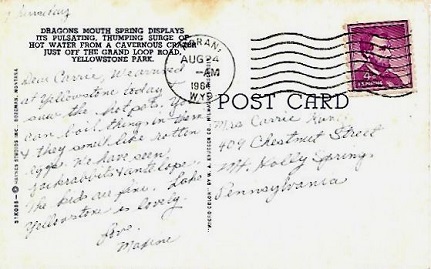 DRAGONS MOUTH SPRING DISPLAYS
ITS PULSATING, THUMPING SURGE OF
HOT WATER FROM A CAVERNOUS CRATER
JUST OFF THE GRAND LOOP ROAD,
YELLOWSTONE PARK.
Dear Carrie, We arrived
at Yellowstone today
saw the Hotpots. You
can boil things in them
& they smell like rotten
eggs. We have seen
jackrabbits & antelope.
The kids are fine. Lake
Yellowstone is lovely.
Love.
Maxine
AUG 24
AM
1964
WYO.
4¢
POST CARD
Mrs Carrie
409 Chestnut Street
Mt. Holly Springs,
Pennsylvania
HAYNES STUDIOS INC. BOZEMAN, MONTANA